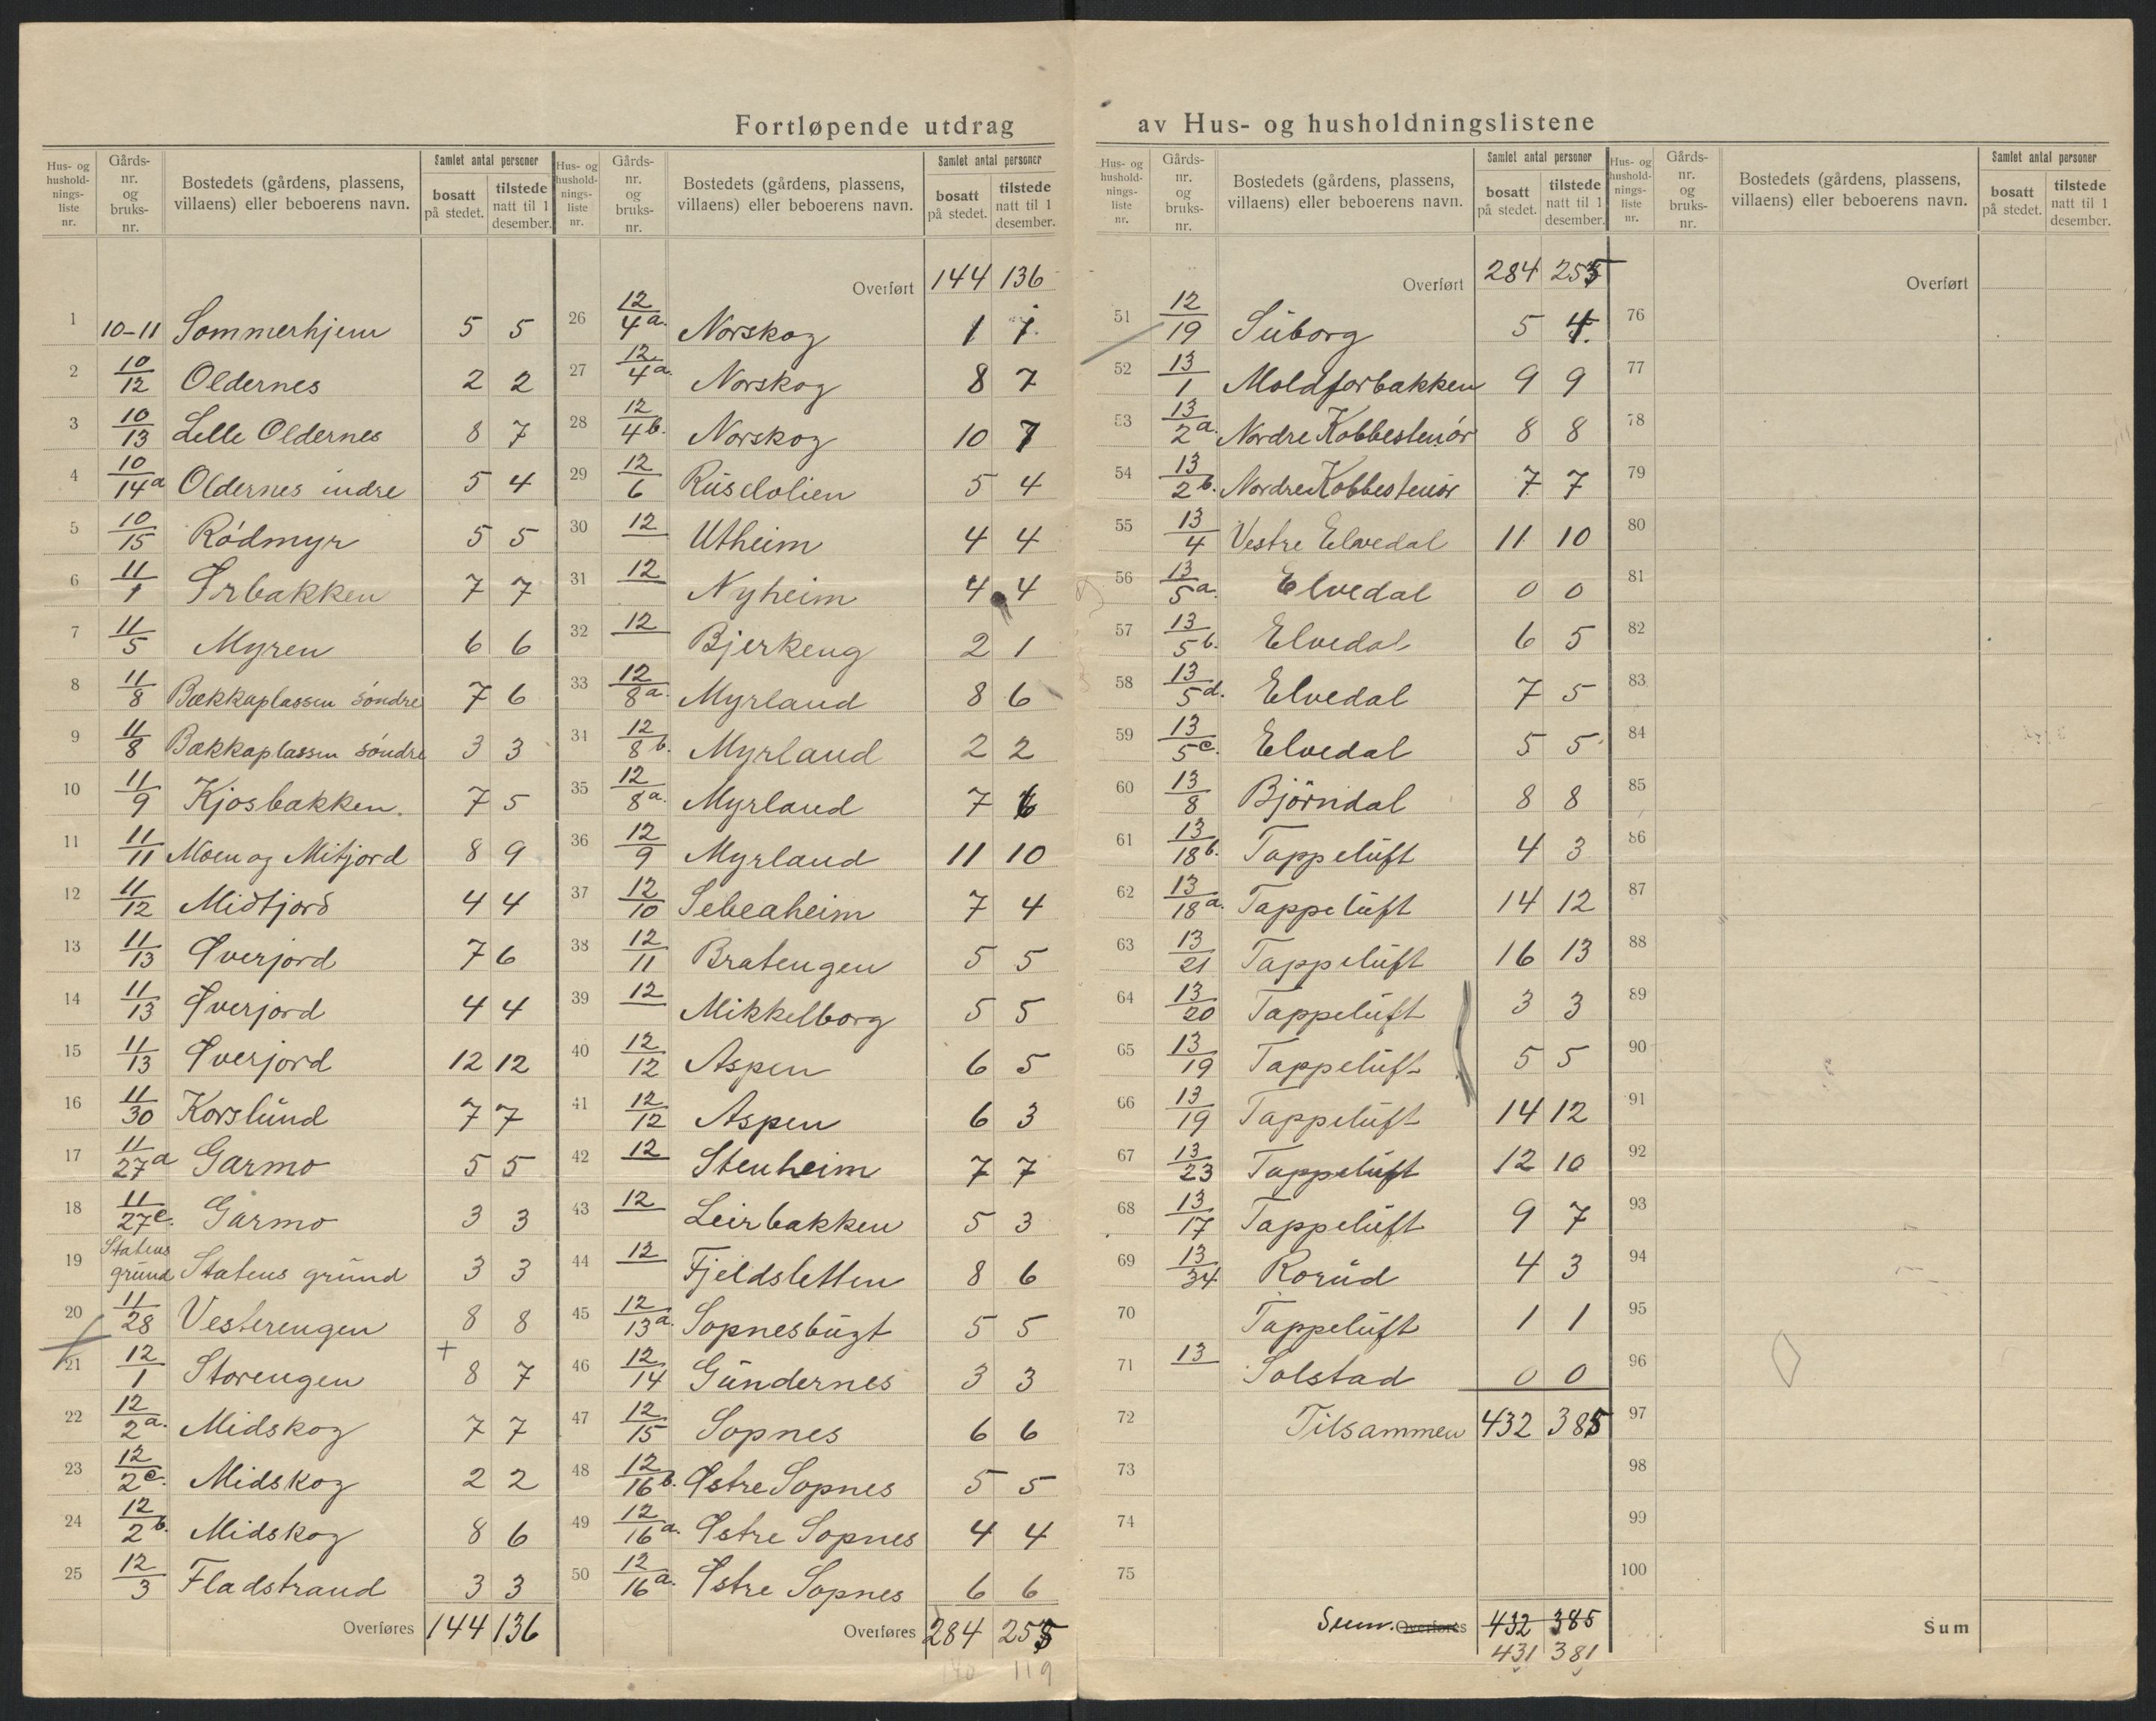 Fortløpende utdrag av Hus- og husholdningslistene
Hus- og hushold-nings-liste nr. | Gårds-nr. og bruks-nr. | Bostedets (gårdens, plassens, villaens) eller beboerens navn. | Samlet antal personer | bosatt på stedet. | tilstede natt til 1 desember.
1 10-11 Sommerhjem 5 5
2 10/12 Oldernes 2 2
3 10/13 Lille Oldernes 8 7
4 10/14a Oldernes indre 5 4
5 10/15 Rödmyr 5 5
6 11/1 Ørbakken 7 7
7 11/5 Myren 6 6
8 11/8 Bækkaplassen söndre 7 6
9 11/8 Bækkaplassen söndre 3 3
10 11/9 Kjosbakken. 7 5
11 11/11 Moen og Mitjord 8 9
12 11/12 Midtjord 4 4
13 11/13 Øverjord 7 6
14 11/13 Øverjord 4 4
15 11/13 Øverjord 12 12
16 11/30 Korslund 7 7
17 11/27a Garmo 5 5
18 11/27c. Garmo 3 3
19 Statens grund Statens grund 3 3
20 11/28 Vesterengen 8 8
21 12/1 Storengen + 8 7
22 12/2a. Midskog 7 7
23 12/2c. Midskog 2 2
24 12/2b. Midskog 8 6
25 12/3 Fladstrand 3 3
Overføres 144 136
Hus- og hushold-nings-liste nr. | Gårds-nr. og bruks-nr. | Bostedets (gårdens, plassens, villaens) eller beboerens navn. | Samlet antal personer | bosatt på stedet. | tilstede natt til 1 desember.
Overført 144 136
26 12/4a. Norskog 1 1.
27 12/4a. Norskog 8 7
28 12/4b. Norskog 10 7
29 12/6 Rüsdolien 5 4
30 12 Utheim 4 4
31 12 Nyheim 4 4
32 12 Bjerkeng 2 1
33 12/8a. Myrland 8 6
34 12/8b. Myrland 2 2
35 12/8a. Myrland 7 6
36 12/9 Myrland 11 10
37 12/10 Sebeaheim 7 4
38 12/11 Bratengen 5 5
39 12 Mikkelborg 5 5
40 12/12 Aspen 6 5
41 12/12 Aspen 6 3
42 12 Stenheim 7 7
43 12 Leirbakken 5 3
44 12 Fjeldsletten 8 6
45 12/13a. Sopnesbugt 5 5
46 12/14 Gundernes 3 3
47 12/15 Sopnes 6 6
48 12/16b. Østre Sopnes 5 5
49 12/16a. Østre Sopnes 4 4
50 12/16a. Østre Sopnes 6 6
Overføres 284 255
140 119
Hus- og hushold-nings-liste nr. | Gårds-nr. og bruks-nr. | Bostedets (gårdens, plassens, villaens) eller beboerens navn. | Samlet antal personer | bosatt på stedet. | tilstede natt til 1 desember.
Overført 284 255
51 12/19 Suborg 5 4.
52 13/1 Moldforbakken 9 9
53 13/2a. Nordre Kobbestenör 8 8
54 13/2b. Nordre Kobbestenör 7 7
55 13/4 Vestre Elvedal 11 10
56 13/5a. Elvedal 0 0
57 13/5b. Elvedal 6 5
58 13/5d. Elvedal 7 5
59 13/5c. Elvedal 5 5
60 13/8 Björndal 8 8
61 13/18b. Tappeluft 4 3
62 13/18a. Tappeluft 14 12
63 13/21 Tappeluft 16 13
64 13/20 Tappeluft 3 3
65 13/19 Tappeluft 5 5
66 13/19 Tappeluft 14 12
67 13/23 Tappeluft 12 10
68 13/17 Tappeluft 9 7
69 13/34 Rorud 4 3
70 Tappeluft 1 1
71 13 Solstad 0 0
72 Tilsammen 432 385
73
74
75
Sum. Overføres 432 385
431 381
Hus- og hushold-nings-liste nr. | Gårds-nr. og bruks-nr. | Bostedets (gårdens, plassens, villaens) eller beboerens navn. | Samlet antal personer | bosatt på stedet. | tilstede natt til 1 desember.
Overført
76
77
78
79
80
81
82
83
84
85
86
87
88
89
90
91
92
93
94
95
96
97
98
99
100
Sum